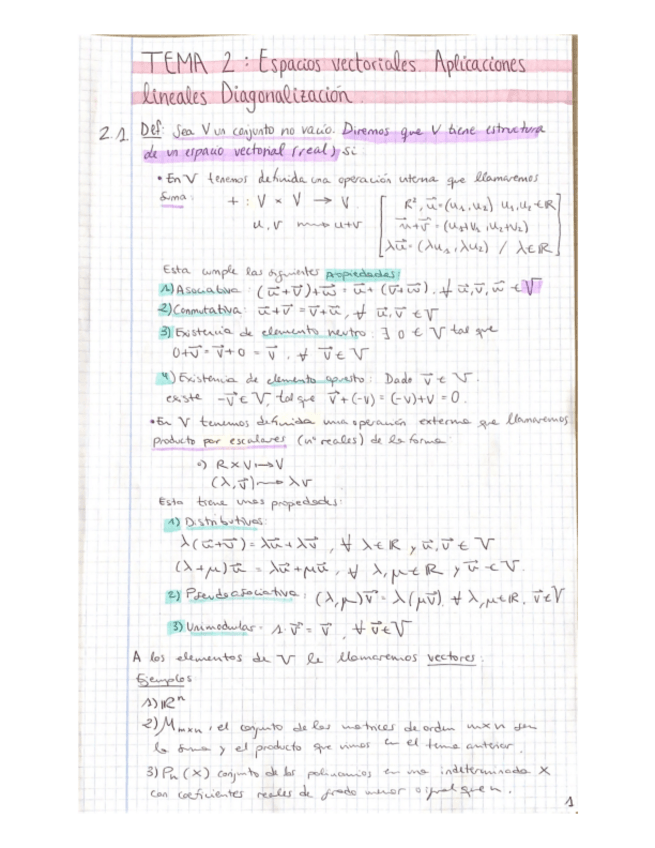 TEMA 2: Espacios vectoriales. Aplicaciones
lineales Diagonalización.
2.1 Def: Sea V un conjunto no vacío. Diremos que V tiene estructura
de un espacio vectorial (real) si
• En V tenemos definida una operación interna que llamaremos
suma:
+ : V × V → V
u, v ⟿ u+v
[ R², u⃗=(u₁,u₂) u₁,u₂∈R
u⃗+v⃗=(u₁+v₁,u₂+v₂)
λu⃗=(λu₁,λu₂) / λ∈R ]
Esta cumple las siguientes propiedades:
1) Asociativa: (u⃗+v⃗)+w⃗ = u⃗+(v⃗+w⃗), ∀ u⃗,v⃗,w⃗ ∈ V
2) Conmutativa: u⃗+v⃗ = v⃗+u⃗, ∀ u⃗,v⃗ ∈ V
3) Existencia de elemento neutro: ∃ 0 ∈ V tal que
0+v⃗ = v⃗+0 = v⃗, ∀ v⃗ ∈ V
4) Existencia de elemento opuesto: Dado v⃗ ∈ V.
existe -v⃗ ∈ V, tal que v⃗+(-v) = (-v)+v = 0.
• En V tenemos definida una operación externa que llamaremos
producto por escalares (nº reales) de la forma
·) R×V→V
(λ,v⃗) ⟿ λv
Esta tiene unas propiedades:
1) Distributivas:
λ(u⃗+v⃗) = λu⃗+λv⃗, ∀ λ∈R y u⃗,v⃗ ∈ V
(λ+μ)u⃗ = λu⃗+μu⃗, ∀ λ,μ∈R y u⃗ ∈ V.
2) Pseudoasociativa: (λ,μ)v⃗ = λ(μv⃗), ∀ λ,μ∈R, v⃗∈V
3) Unimodular. 1·v⃗ = v⃗, ∀ v⃗∈V
A los elementos de V le llamaremos vectores.
Ejemplos
1) Rⁿ
2) Mm×n, el conjunto de las matrices de orden m×n con
la suma y el producto que vimos en el tema anterior.
3) Pn(X) conjunto de los polinomios en una indeterminada X
con coeficientes reales de grado menor o igual que n.
1